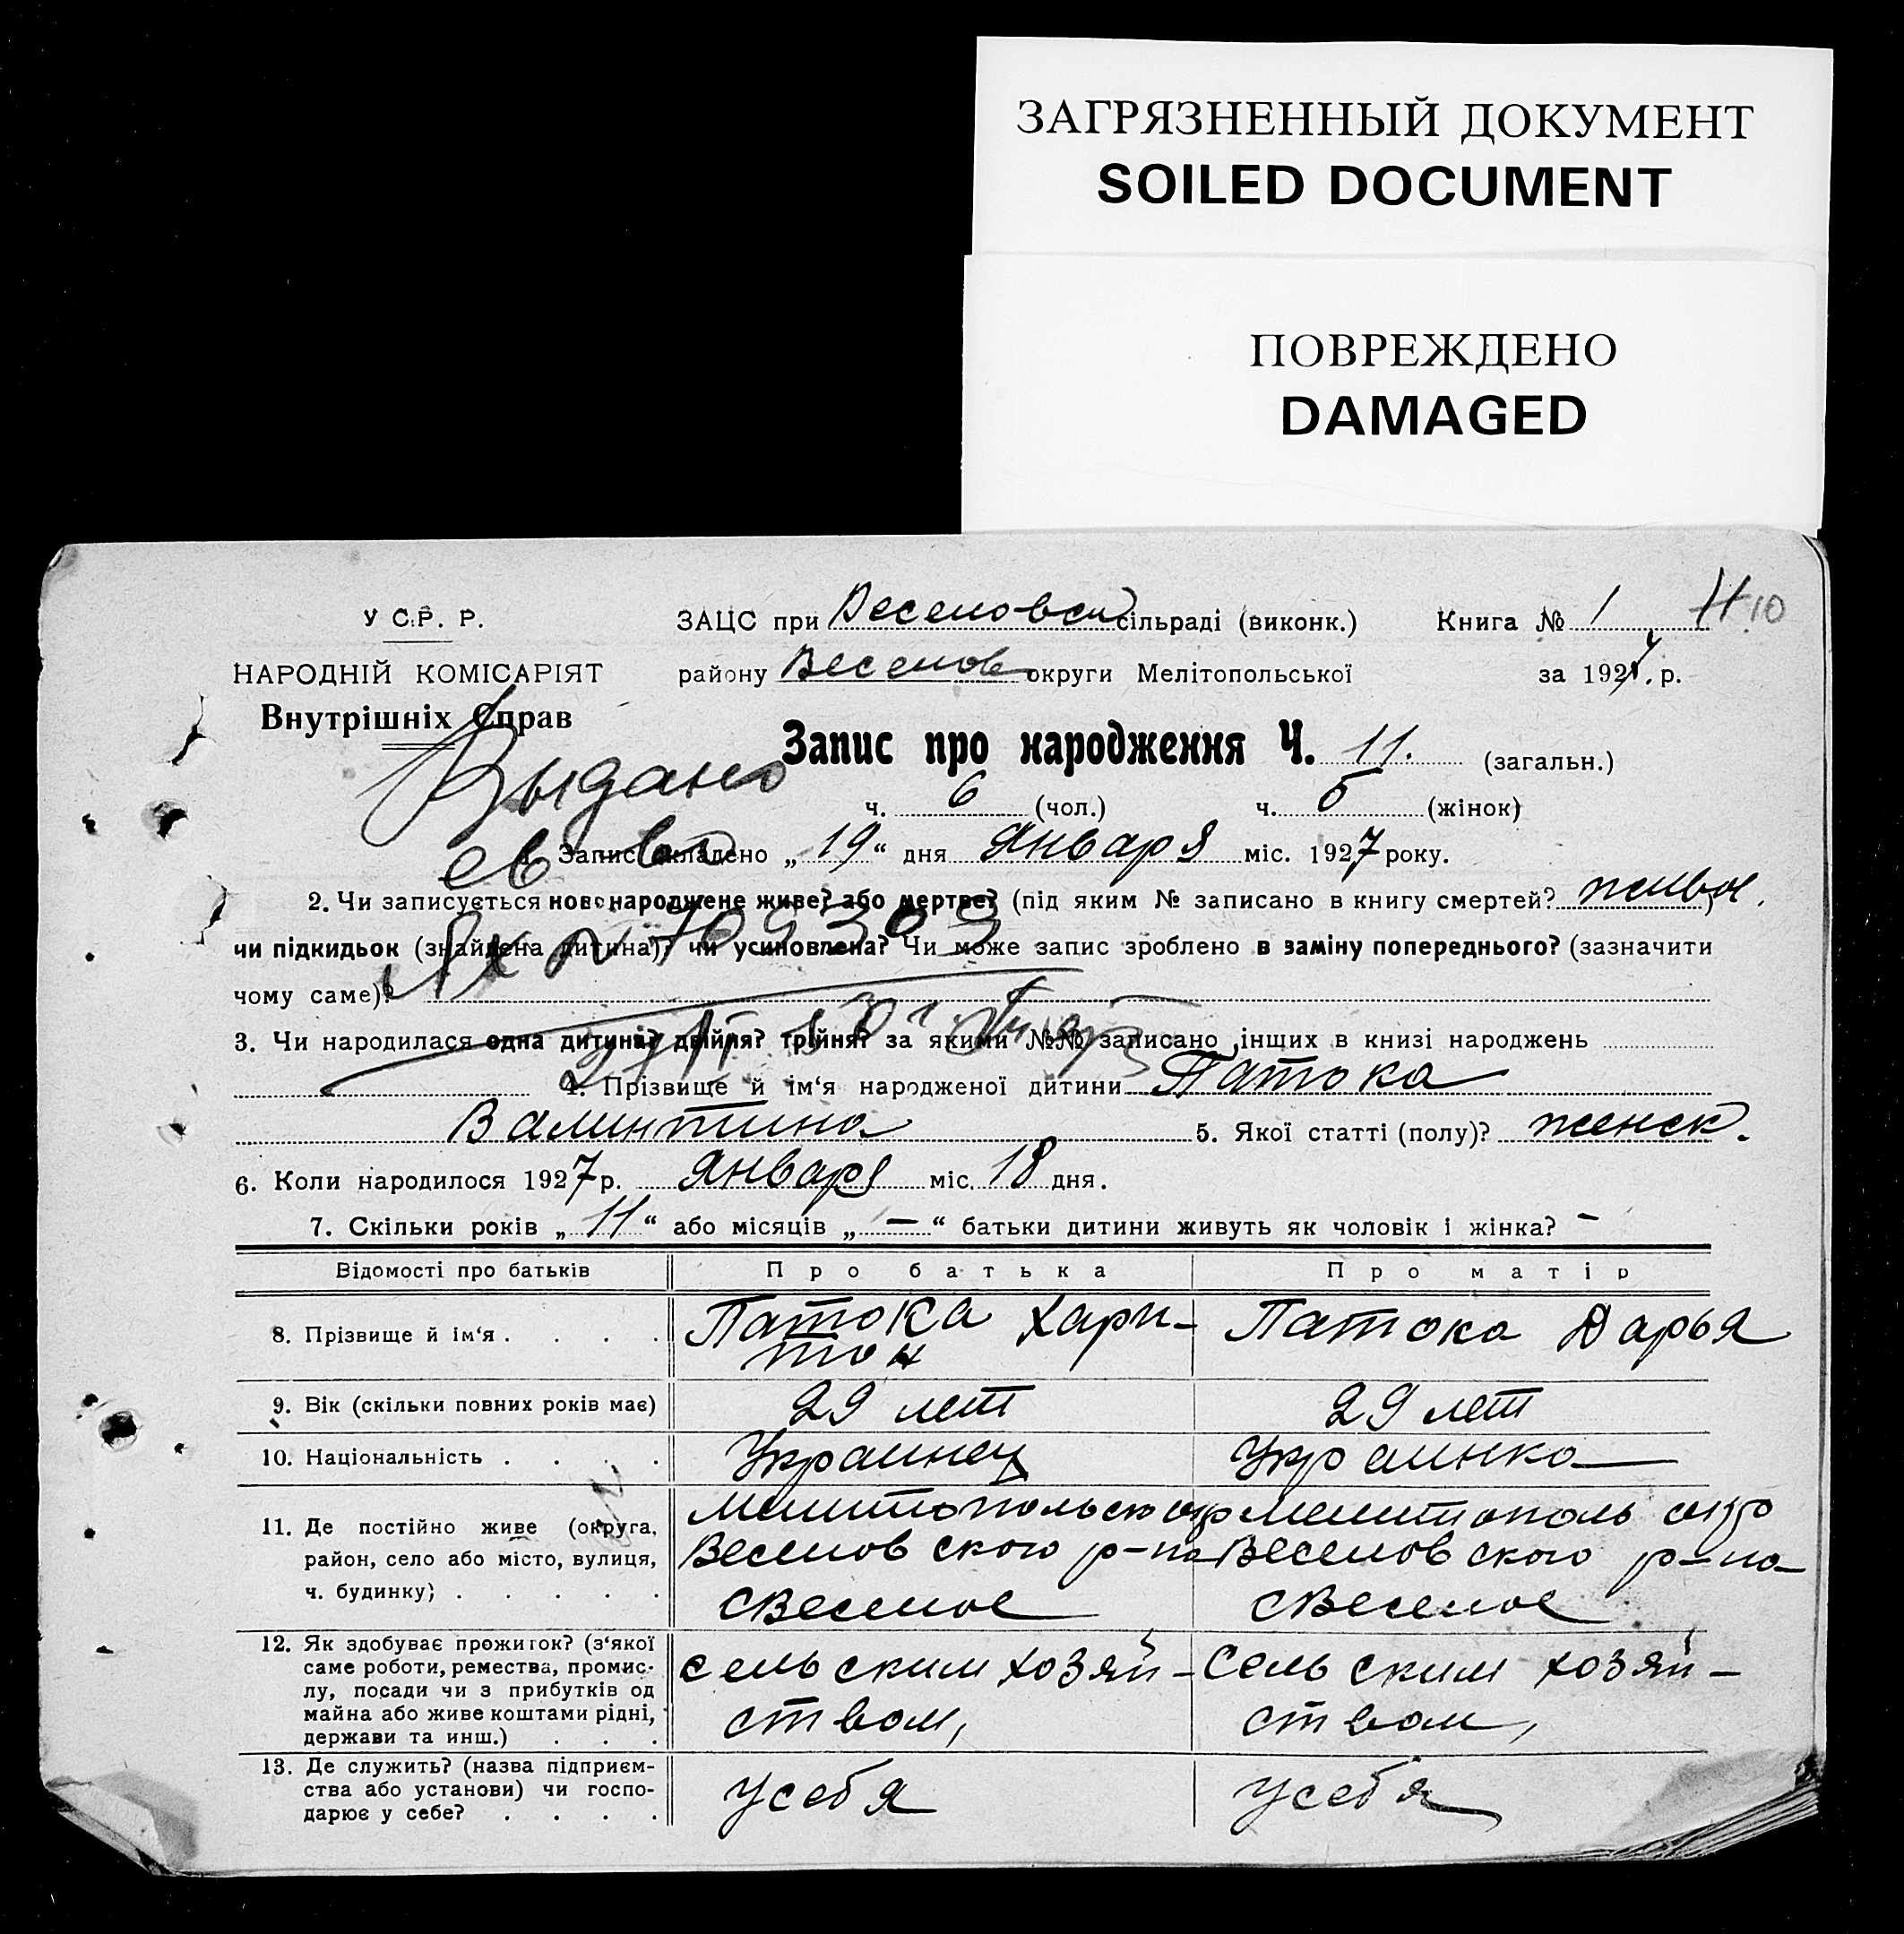 ЗАГРЯЗНЕННЫЙ ДОКУМЕНТ
SOILED DOCUMENT
ПОВРЕЖДЕНО
DAMAGED
У С.Р. Р.
ЗАЦС при Веселовск сільраді (виконк.) Книга № 1 10
НАРОДНІЙ КОМІСАРІЯТ
району Веселов округи Мелітопольської за 192 р.
Внутрішніх Справ
Запис про народження Ч. 11. (загальн.)
Выдано
ч. 6 (чол.) ч. 5 (жінок)
св во
1. Запис складено „19“ дня Января міс. 1927 року.
2. Чи записується новонароджене живе? або мертве? (під яким № записано в книгу смертей? живое)
чи підкидьок (знайдена дитина)? чи усиновлена? Чи може запис зроблено в заміну попереднього? (зазначити
чому саме)?
3. Чи народилася одна дитина? двійня? трійня? за якими №№ записано інших в книзі народжень
4. Прізвище й ім‘я народженої дитини Патока
Валинтина 5. Якої статті (полу)? женск.
6. Коли народилося 1927 р. Января міс. 18 дня.
7. Скільки років „11“ або місяців „—“ батьки дитини живуть як чоловік і жінка? -
Відомості про батьків Про батька Про матір
8. Прізвище й ім‘я . . . . Патока Хари- Патока Дарья
тон
9. Вік (скільки повних років має) 29 лет 29 лет
10. Національність . . . . Украинец Украинка
11. Де постійно живе (округа, Мелитопольск окр Мелитополь окр
район, село або місто, вулиця, Веселовского р-на Веселовского р-на
ч. будинку) . . . . . с Веселое с Веселое
12. Як здобуває прожиток? (з‘якої
саме роботи, ремества, промис- сельским хозяй- Сельским хозяй-
лу, посади чи з прибутків од
майна або живе коштами рідні, ством, ством,
держави та инш.) . . .
13. Де служить? (назва підприєм-
ства або установи) чи госпо- у себя у себя
дарює у себе? . . . .